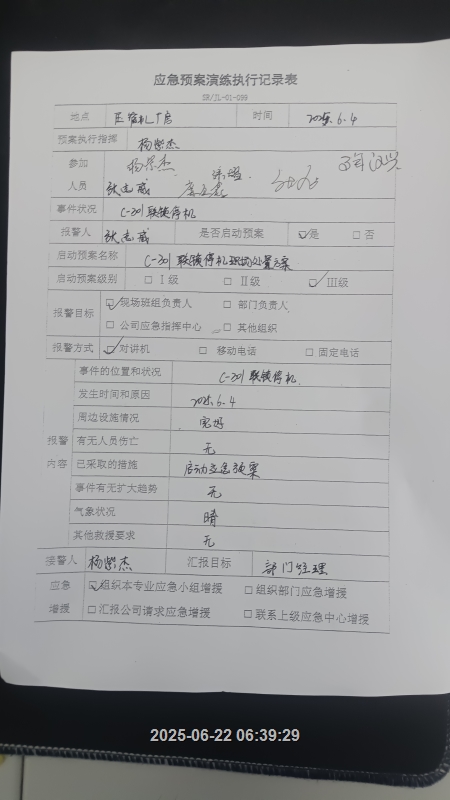 应急预案演练执行记录表
SH/JL-01-099
地点 压缩机厂房 时间 2025.6.4
预案执行指挥 杨紫杰
参加人员 杨紫杰
张志威
事件状况 C-301联锁停机
报警人 张志威 是否启动预案 ☑是 □否
启动预案名称 C-301联锁停机现场处置方案
启动预案级别 □Ⅰ级 □Ⅱ级 ☑Ⅲ级
报警目标 ☑现场班组负责人 □部门负责人
□公司应急指挥中心 □其他组织
报警方式 ☑对讲机 □移动电话 □固定电话
报警内容
事件的位置和状况 C-301联锁停机.
发生时间和原因 2025.6.4
周边设施情况 完好
有无人员伤亡 无
已采取的措施 启动应急预案
事件有无扩大趋势 无
气象状况 晴
其他救援要求 无
接警人 杨紫杰 汇报目标 部门经理
应急增援 ☑组织本专业应急小组增援 □组织部门应急增援
□汇报公司请求应急增援 □联系上级应急中心增援
2025-06-22 06:39:29